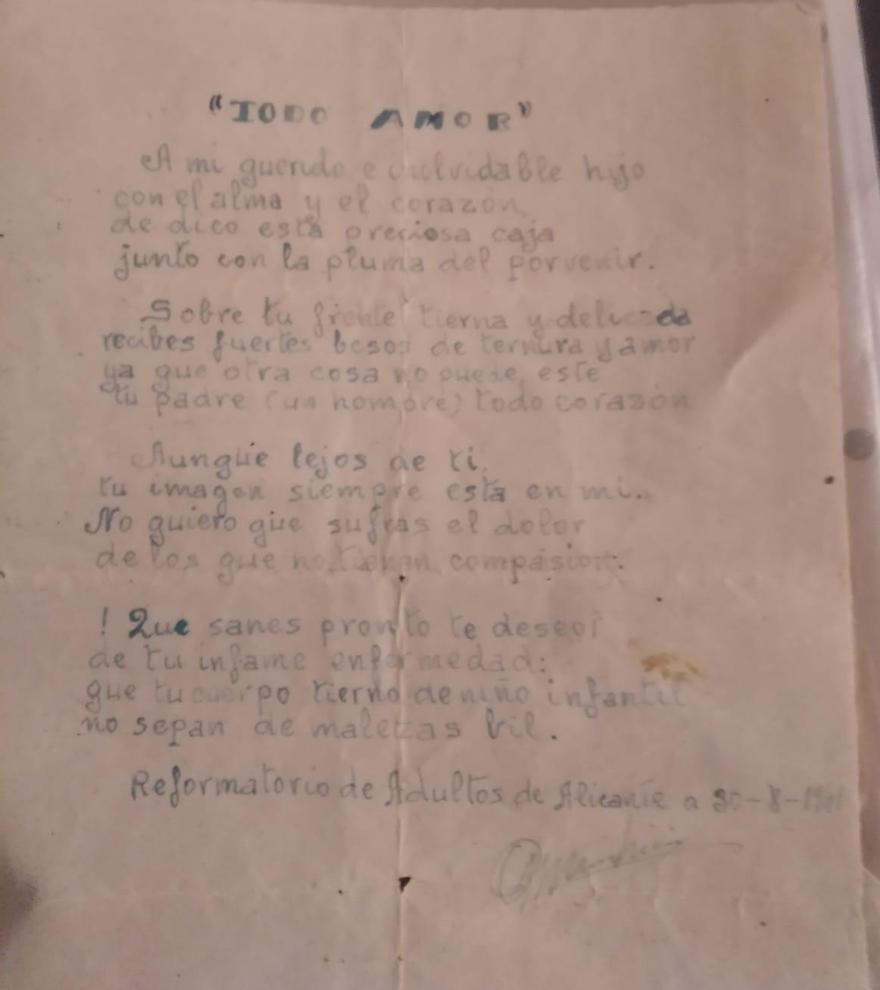 "TODO AMOR"
A mi querido e inolvidable hijo
con el alma y el corazón,
de dico esta preciosa caja
junto con la pluma del porvenir.
Sobre tu frente tierna y delicada
recibes fuertes besos de ternura y amor
ya que otra cosa no puede, este
tu padre (un hombre) todo corazón
Aunque lejos de ti,
tu imagen siempre esta en mi.
No quiero que sufras el dolor
de los que no tienen compasion.
! Que sanes pronto te deseo!
de tu infame enfermedad:
que tu cuerpo tierno de niño infantil
no sepan de malezas vil.
Reformatorio de Adultos de Alicante a 30-8-